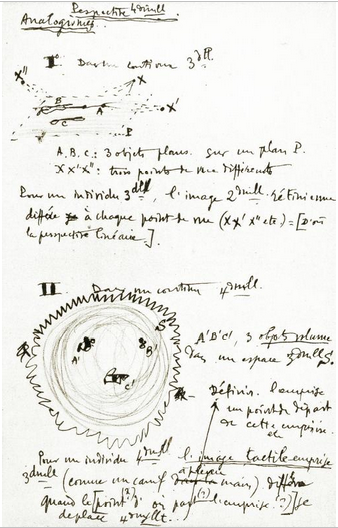 Perspective 4dmell.
Analogismes
I° Dans un continu 3dtl
X"
X
B
A
X'
C
P
A.B.C.: 3 objets plans. sur un plan P.
X X' X": trois points de vue différents
Pour un individu 3dtl, l'image 2dmell. rétinienne
diffère à chaque point de vue (X X' X" etc.) = [D'où
la perspective linéaire.]
II. Dans un continu 4dmell.
S
A'
B'
C'
A'B'C', 3 objets volume
dans un espace 3dmell S.
Définir. l'emprise
et un point de départ
de cette emprise.
Pour un individu 4dmell l'image tactile-emprise
3dmell (comme un canif à pleine main) diffère
quand le [point (?) d'où part (?) l'emprise. ?] se
déplace 4dmellt.